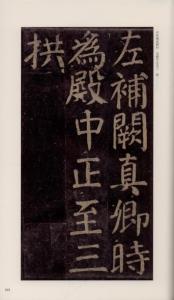 左補闕真卿時
為殿中正至三
拱